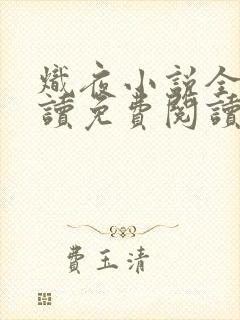 熾夜小説全
讀免費閱讀
費玉清